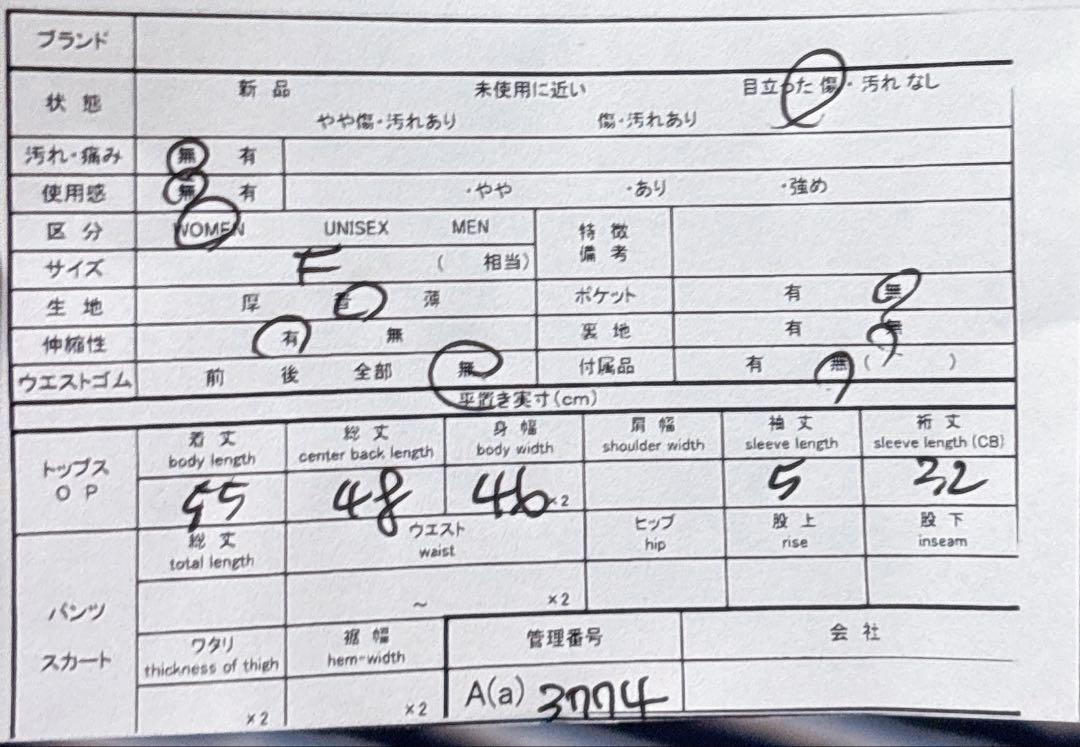 ブランド
状態 新品 未使用に近い 目立った傷・汚れなし
やや傷・汚れあり 傷・汚れあり
汚れ・痛み 無 有
使用感 無 有 ・やや ・あり ・強め
区分 WOMEN UNISEX MEN 特徴
備考
サイズ F ( 相当)
生地 厚 普 薄 ポケット 有 無
伸縮性 有 無 裏地 有 無
ウエストゴム 前 後 全部 無 付属品 有 無 ( )
平置き実寸(cm)
トップス
OP
着丈 総丈 身幅 肩幅 袖丈 裄丈
body length center back length body width shoulder width sleeve length sleeve length (CB)
55 48 46 ×2 5 32
パンツ
スカート
総丈 ウエスト ヒップ 股上 股下
total length waist hip rise inseam
~ ×2
ワタリ 裾幅 管理番号 会社
thickness of thigh hem-width
×2 ×2 A(a) 3774